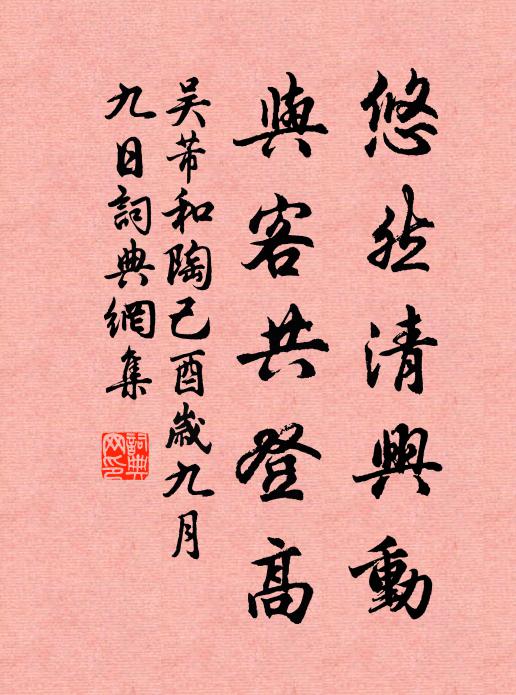 悠然清興動
與客共登高
吳芾和陶己酉歲九月
九日詞典網集
詞典網印